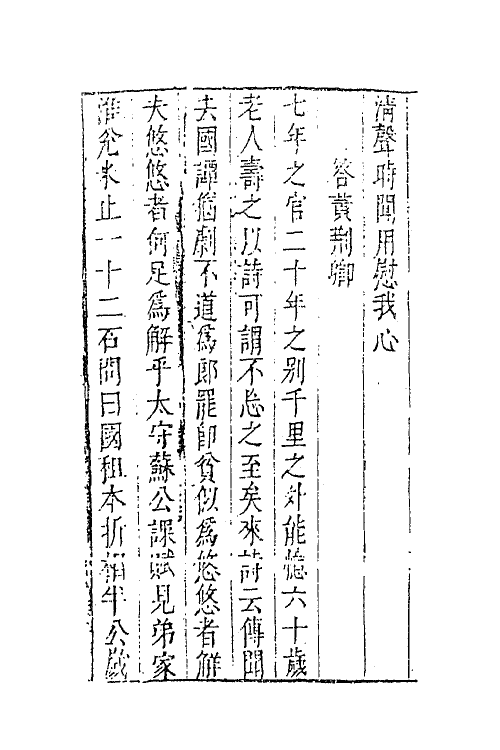 清聲時聞用慰我心
答黃荆卿
七年之官二十年之别千里之外能憶六十歲
老人壽之以詩可謂不忘之至矣來詩云傳聞
去國譚猶劇不道爲郎罷卽貧似爲悠悠者解
夫悠悠者何足爲解乎太守蘇公課賦見弟家
淮兊米止一十二石問曰國租本折相半公歲